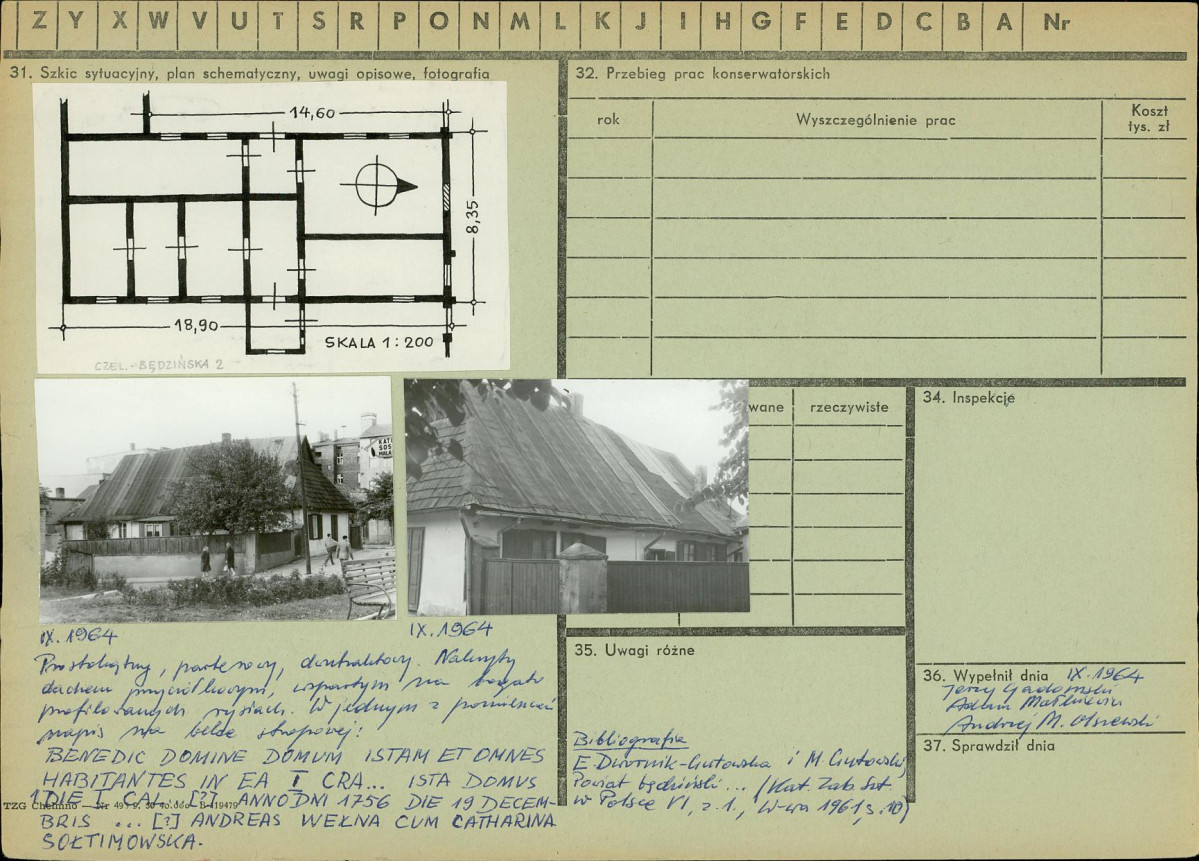 Z Y X W V U T S R P O N M L K J I H G F E D C B A Nr
31. Szkic sytuacyjny, plan schematyczny, uwagi opisowe, fotografia
14,60
8,35
18,90
SKALA 1:200
CZEL.-BĘDZIŃSKA 2
KAT
SOS
MAŁA
IX.1964
IX.1964
Prostokątny, parterowy, dwutraktowy. Nakryty
dachem przyciółkowym, wspartym na bogato
profilowanych rysiach. W jednym z pomieszczeń
napis na belce stropowej:
BENEDIC DOMINE DOMUM ISTAM ET OMNES
HABITANTES IN EA I CRA... ISTA DOMUS
1 DIE I CAL [?] ANNO DNI 1756 DIE 19 DECEM-
BRIS ... [?] ANDREAS WEŁNA CUM CATHARINA
SOŁTIMOWSKA.
TZG Chełmno
32. Przebieg prac konserwatorskich
rok
Wyszczególnienie prac
Koszt
tys. zł
wane
rzeczywiste
34. Inspekcje
35. Uwagi różne
Bibliografia
E. Dwornik-Gutowska i M. Gutowski
Powiat będziński... /Kat. Zab. Szt.
w Polsce VI, z. 1, W-wa 1961, s. 10/
36. Wypełnił dnia IX.1964
Jerzy Gadomski
Adam Małkiewicz
Andrzej M. Olszewski
37. Sprawdził dnia